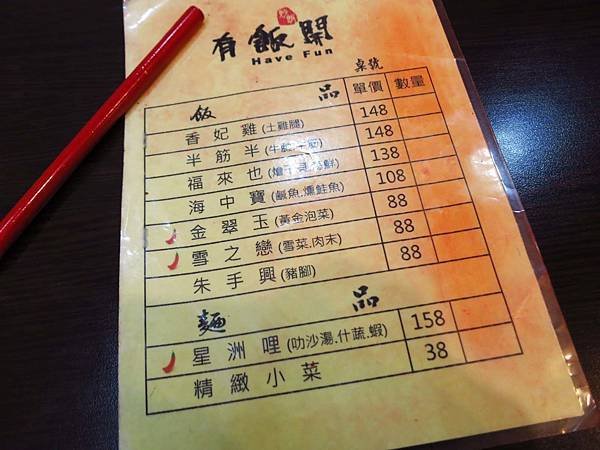 有飯閑
Have Fun
桌號
飯品 單價 數量
香妃雞(土雞腿) 148
半筋半 148
福來也 138
海中寶(鹹魚.燻鮭魚) 108
金翠玉(黃金泡菜) 88
雪之戀(雪菜.肉末) 88
朱手興(豬腳) 88
麵品
星洲哩(叻沙湯.什蔬.蝦) 158
精緻小菜 38